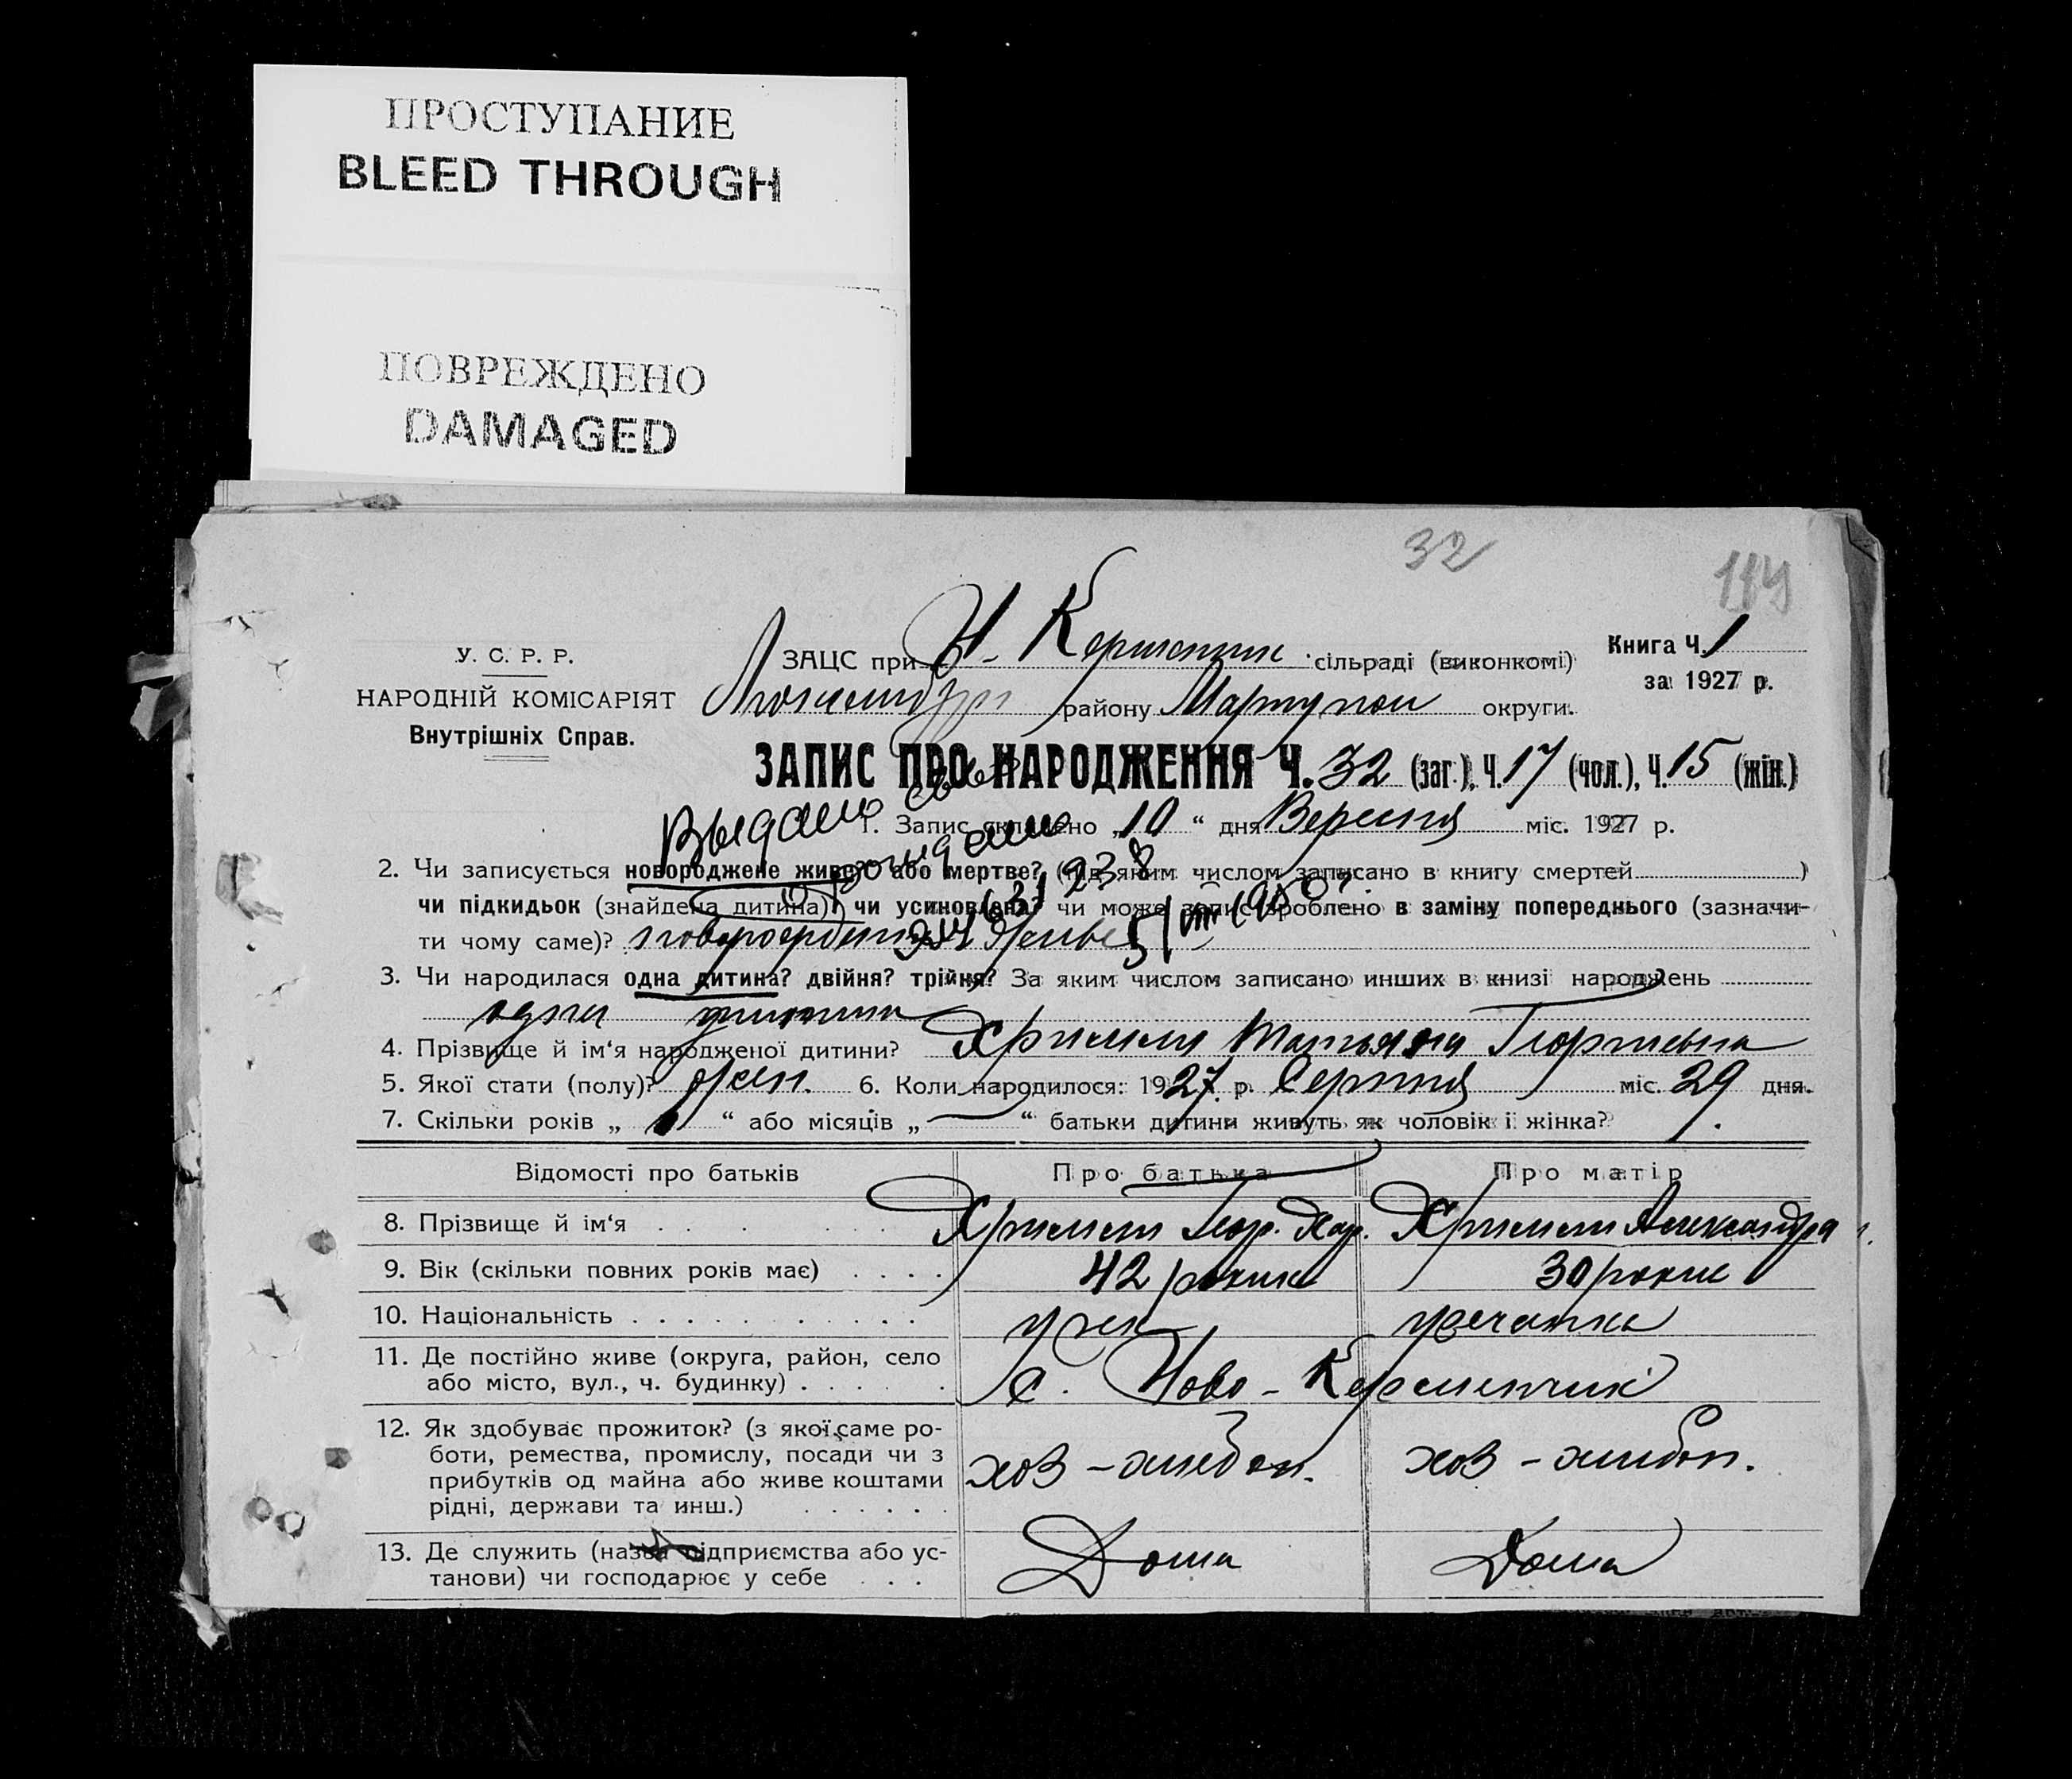 ПРОСТУПАНИЕ
BLEED THROUGH
ПОВРЕЖДЕНО
DAMAGED
32
114
У. С. Р. Р.
НАРОДНІЙ КОМІСАРІЯТ
Внутрішніх Справ.
ЗАЦС при Н- сільраді (виконкомі)
району округи.
Книга Ч. 1
за 1927 р.
ЗАПИС ПРО НАРОДЖЕННЯ Ч. 32 (заг.), Ч. 17 (чол.), Ч. 15 (жін.)
1. Запис складено „10“ дня Вересня міс. 1927 р.
Выдано
2. Чи записується новороджене живе? або мертве? (під яким числом записано в книгу смертей )
чи підкидьок (знайдена дитина)? чи усиновлена? чи може запис зроблено в заміну попереднього (зазначи-
ти чому саме)?
3. Чи народилася одна дитина? двійня? трійня? За яким числом записано инших в книзі народжень
одна дитина
4. Прізвище й ім‘я народженої дитини? Татьяна Георгіевна
5. Якої стати (полу)? жен. 6. Коли народилося: 1927 р. Серпня міс. 29 дня.
7. Скільки років „ “ або місяців „ — “ батьки дитини живуть як чоловік і жінка?
Відомості про батьків Про батька Про матір
8. Прізвище й ім‘я Геор. Хар. Александра
9. Вік (скільки повних років має) 42 роки 30 роки
10. Національність грек гречанка
11. Де постійно живе (округа, район, село
або місто, вул., ч. будинку) с. Ново-Керменчик
12. Як здобуває прожиток? (з якої саме ро-
боти, ремества, промислу, посади чи з
прибутків од майна або живе коштами
рідні, держави та инш.) хоз-хлибоп. хоз-хлибоп.
13. Де служить (назва підприємства або ус-
танови) чи господарює у себе Дома Дома